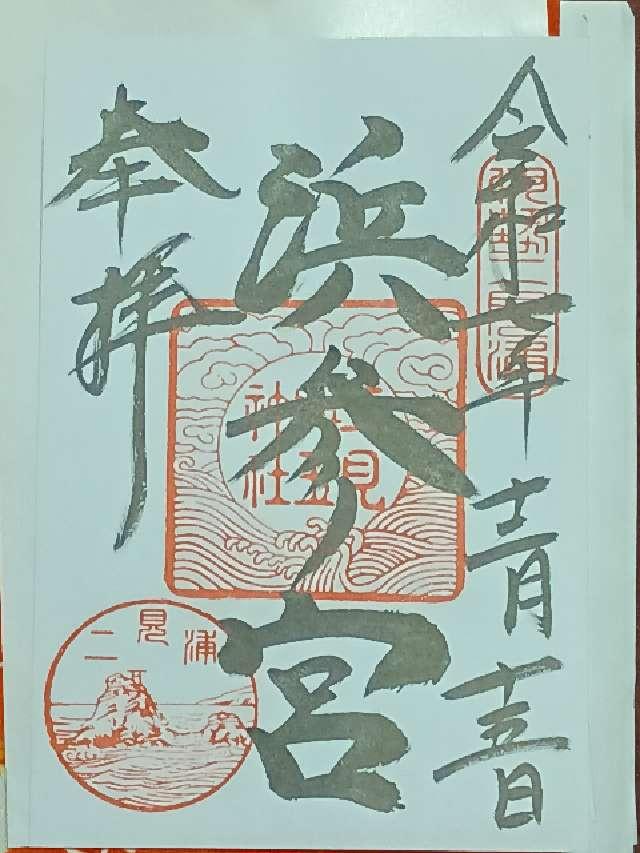 令和七年十一月十五日
伊勢二見浦
浜参ノ宮
二見興玉神社
奉拝
二見浦